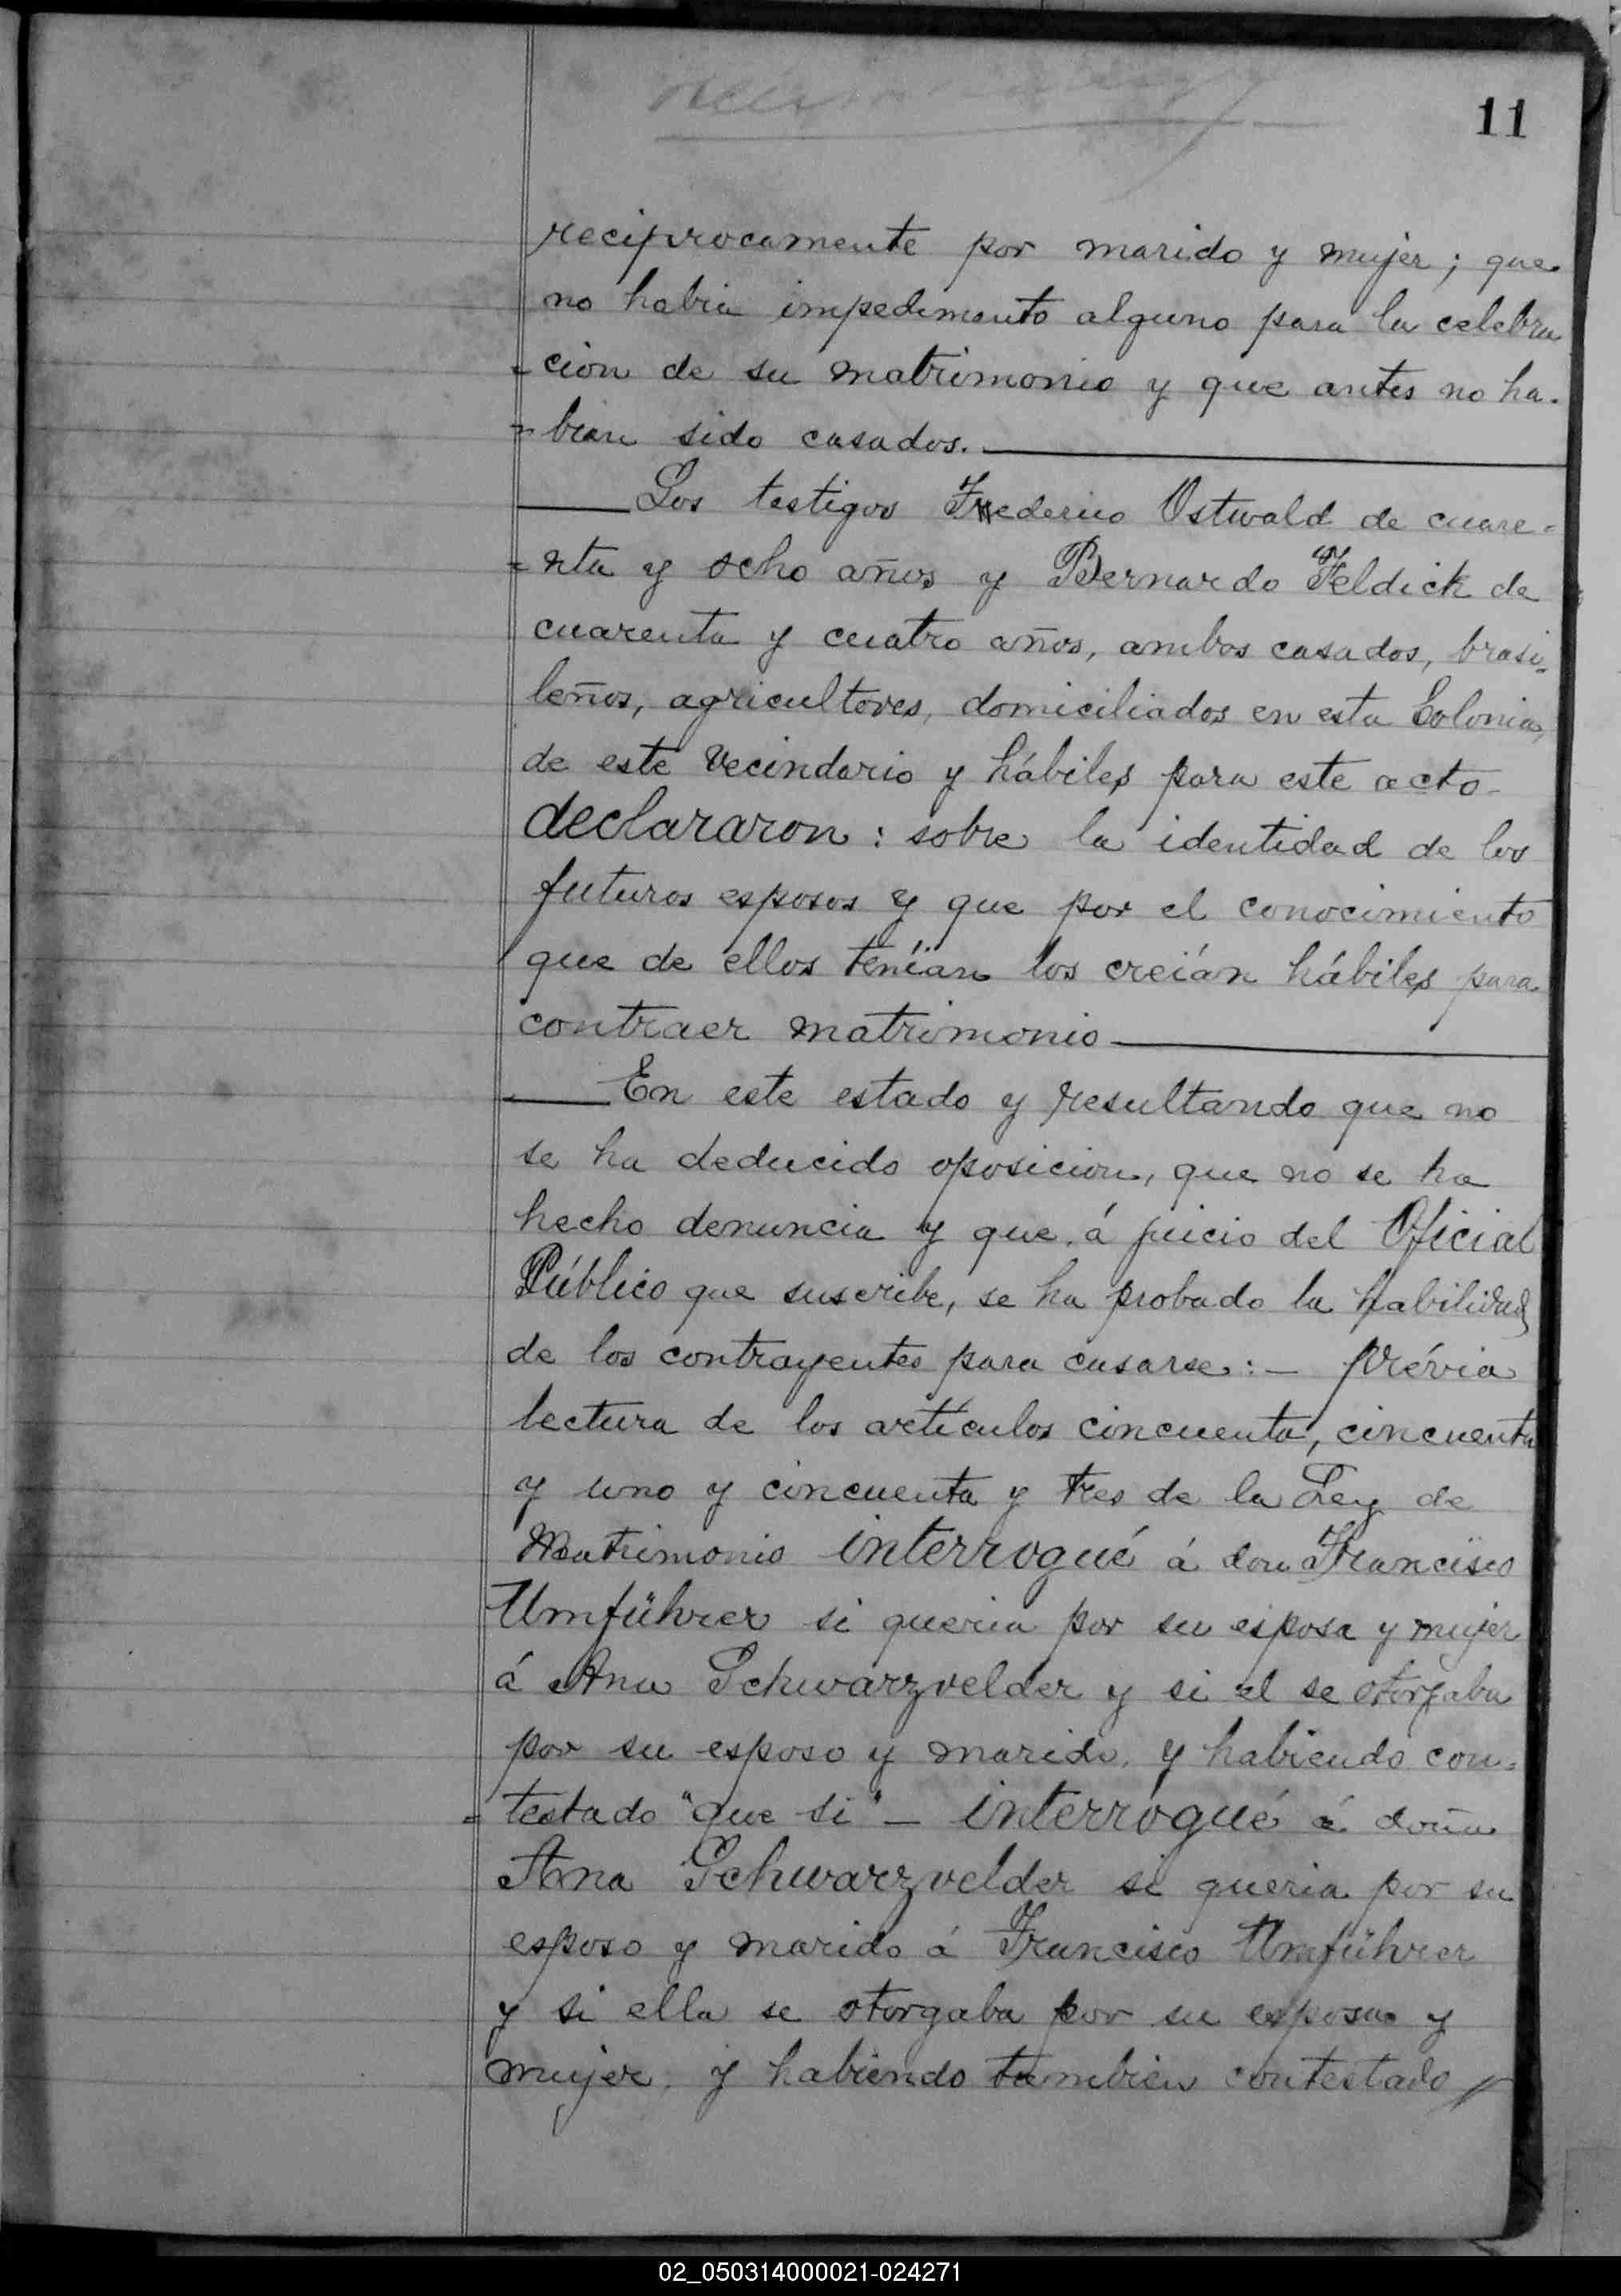 11
reciprocamente por marido y mujer; que
no habia impedimento alguno para la celebra
-cion de su matrimonio y que antes no ha-
-bian sido casados.
Los testigos Frederico Ostwald de cuare-
-nta y ocho años y Bernardo Feldick de
cuarenta y cuatro años, ambos casados, brasi-
leños, agricultores, domiciliados en esta Colonia,
de este vecindario y hábiles para este acto-
declararon: sobre la identidad de los
futuros esposos y que por el conocimiento
que de ellos tenían los creían hábiles para
contraer matrimonio
En este estado y resultando que no
se ha deducido oposicion, que no se ha
hecho denuncia y que á juicio del Oficial
Público que suscribe, se ha probado la habilidad
de los contrayentes para casarse:- prévia
lectura de los artículos cincuenta, cincuenta
y uno y cincuenta y tres de la Ley de
Matrimonio interrogué á don Francisco
Umführer si queria por su esposa y mujer
á Ana Schwarzvelder y si el se otorgaba
por su esposo y marido, y habiendo con-
-testado "que si" - interrogué á doña
Ana Schwarzvelder si queria por su
esposo y marido á Francisco Umführer
y si ella se otorgaba por su esposa y
mujer, y habiendo tambien contestado
02_050314000021-024271